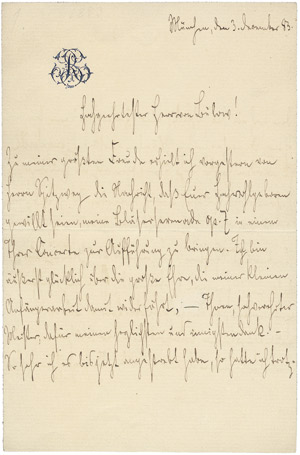 München, den 3. December 83.
Hochgeehrtester Herr von Bülow!
Zu meiner größten Freude erhielt ich vorgestern von
Herrn Spitzweg die Nachricht, daß Euer Hochwohlgeboren
gewillt seien, meine Bläserserenade op. 7 in einem
Ihrer Concerte zur Aufführung zu bringen. Ich bin
äußerst glücklich über die große Ehre, die meiner kleinen
Anfängerarbeit damit widerfährt, — Ihnen, hochverehrter
Meister, dafür meinen herzlichsten und innigsten Dank! —
So sehr ich es bis jetzt angestrebt habe, so hatte ich trotz-